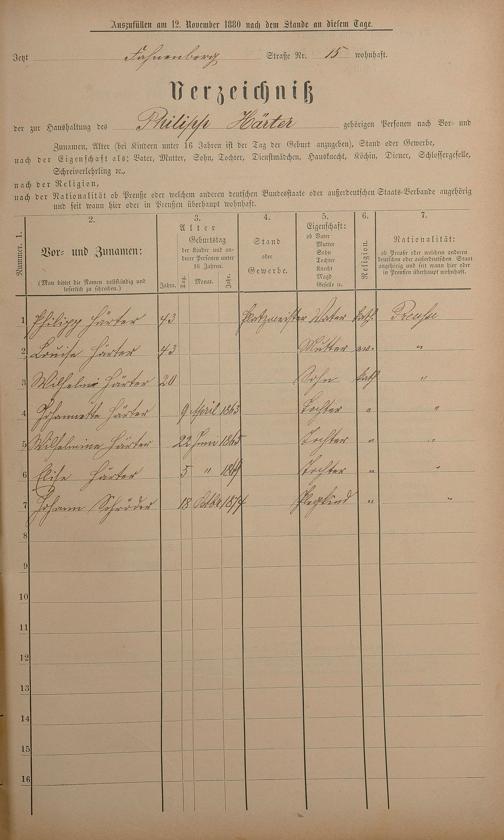 Auszufüllen am 12. November 1880 nach dem Stande an diesem Tage.
Jetzt Fahnenberg Straße Nr. 15 wohnhaft.
Verzeichniß
der zur Haushaltung des Philipp Härter gehörigen Personen nach Vor- und
Zunamen, Alter (bei Kindern unter 16 Jahren ist der Tag der Geburt anzugeben), Stand oder Gewerbe,
nach der Eigenschaft als: Vater, Mutter, Sohn, Tochter, Dienstmädchen, Hausknecht, Köchin, Diener, Schlossergeselle,
Schreiverlehrling ec.,
nach der Religion,
nach der Nationalität ob Preuße oder welchem anderen deutschen Bundesstaate oder außerdeutschen Staats-Verbande angehörig
und seit wann hier oder in Preußen überhaupt wohnhaft.
Nummer. 1.
2.
Vor- und Zunamen:
(Man bittet die Namen vollständig und
leserlich zu schreiben.)
3.
Alter
Geburtstag
der Kinder und an-
derer Personen unter
16 Jahren.
Jahre. Tag. Monat. Jahr.
4.
Stand
oder
Gewerbe.
5.
Eigenschaft:
ob Vater
Mutter
Sohn
Tochter
Knecht
Magd
Geselle u.
6.
Religion.
7.
Nationalität:
ob Preuße oder welchem anderen
deutschen oder außerdeutschen Staat
angehörig und seit wann hier oder
in Preußen überhaupt wohnhaft.
1 Philipp Härter 43 Platzmeister Vater kath. Preuße
2 Louise Härter 43 Mutter ev. "
3 Wilhelm Härter 20 Sohn kath "
4 Johannetta Härter 9 April 1863 Tochter " "
5 Wilhelmina Härter 22 Juni 1865 Tochter " "
6 Elise Härter 5 " 1869 Tochter " "
7 Johann Schröder 18 Octbr 1874 Pflegkind " "
8
9
10
11
12
13
14
15
16